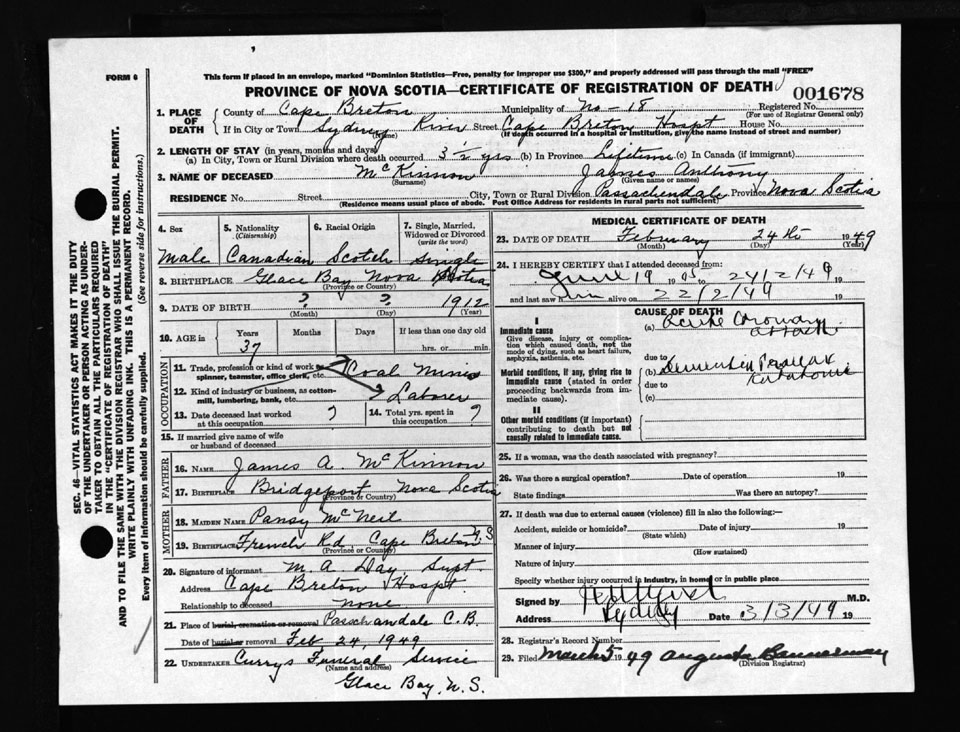 FORM 6
This form if placed in an envelope, marked "Dominion Statistics—Free, penalty for improper use $300," and properly addressed will pass through the mail "FREE"
PROVINCE OF NOVA SCOTIA—CERTIFICATE OF REGISTRATION OF DEATH
001678
1. PLACE OF DEATH
County of Cape Breton Municipality of No - 18 Registered No.
(For use of Registrar General only)
If in City or Town Sydney River Street Cape Breton Hospt House No.
(Name) (If death occurred in a hospital or institution, give the name instead of street and number)
2. LENGTH OF STAY (in years, months and days)
(a) In City, Town or Rural Division where death occurred 3 1/2 yrs (b) In Province Lifetime (c) In Canada (if immigrant)
3. NAME OF DECEASED McKinnon James Anthony
(Surname) (Given name or names)
RESIDENCE No. Street City, Town or Rural Division Passachendale Province Nova Scotia
(Residence means usual place of abode. Post Office Address for residents in rural parts not sufficient)
SEC. 46—VITAL STATISTICS ACT MAKES IT THE DUTY
OF THE UNDERTAKER OR PERSON ACTING AS UNDER-
TAKER TO OBTAIN ALL THE PARTICULARS REQUIRED
IN THE "CERTIFICATE OF REGISTRATION OF DEATH"
AND TO FILE THE SAME WITH THE DIVISION REGISTRAR WHO SHALL ISSUE THE BURIAL PERMIT.
WRITE PLAINLY WITH UNFADING INK. THIS IS A PERMANENT RECORD.
Every item of information should be carefully supplied. (See reverse side for instructions.)
4. Sex 5. Nationality (Citizenship) 6. Racial Origin 7. Single, Married, Widowed or Divorced (write the word)
Male Canadian Scotch Single
8. BIRTHPLACE Glace Bay Nova Scotia
(Province or Country)
9. DATE OF BIRTH ? ? 1912
(Month) (Day) (Year)
10. AGE in Years Months Days If less than one day old
37 hrs. or min.
OCCUPATION
11. Trade, profession or kind of work as spinner, teamster, office clerk, etc. Coal Mines
12. Kind of industry or business, as cotton-mill, lumbering, bank, etc. Laborer
13. Date deceased last worked at this occupation ? 14. Total yrs. spent in this occupation ?
15. If married give name of wife or husband of deceased
FATHER
16. NAME James A. McKinnon
17. BIRTHPLACE Bridgeport Nova Scotia
(Province or Country)
MOTHER
18. MAIDEN NAME Pansy McNeil
19. BIRTHPLACE French Rd, Cape Breton N.S
(Province or Country)
20. Signature of informant M. A. Day, Supt.
Address Cape Breton Hospt.
Relationship to deceased none
21. Place of burial, cremation or removal Passchandale C.B.
Date of burial or removal Feb 24, 1949
22. UNDERTAKER Currys Funeral Service
(Name and address)
Glace Bay, N.S.
MEDICAL CERTIFICATE OF DEATH
23. DATE OF DEATH February 24th 1949
(Month) (Day) (Year)
24. I HEREBY CERTIFY that I attended deceased from:
June 19 to 24/2/49 19
and last saw him alive on 22/2/49 19
CAUSE OF DEATH
I
Immediate cause
Give disease, injury or complication which caused death, not the mode of dying, such as heart failure, asphyxia, asthenia, etc.
(a) Acute Coronary attack
due to
Morbid conditions, if any, giving rise to immediate cause (stated in order proceeding backwards from immediate cause).
(b) Dementia Praecox
due to
(c)
II
Other morbid conditions (if important) contributing to death but not causally related to immediate cause.
25. If a woman, was the death associated with pregnancy?
26. Was there a surgical operation? Date of operation 19
State findings Was there an autopsy?
27. If death was due to external causes (violence) fill in also the following:—
Accident, suicide or homicide? Date of injury 19
(State which)
Manner of injury
(How sustained)
Nature of injury
Specify whether injury occurred in industry, in home or in public place
Signed by M.D.
Address Sydney Date 3/3/49 19
28. Registrar's Record Number
29. Filed March 5 1949 Augusta Bannerman
(Division Registrar)